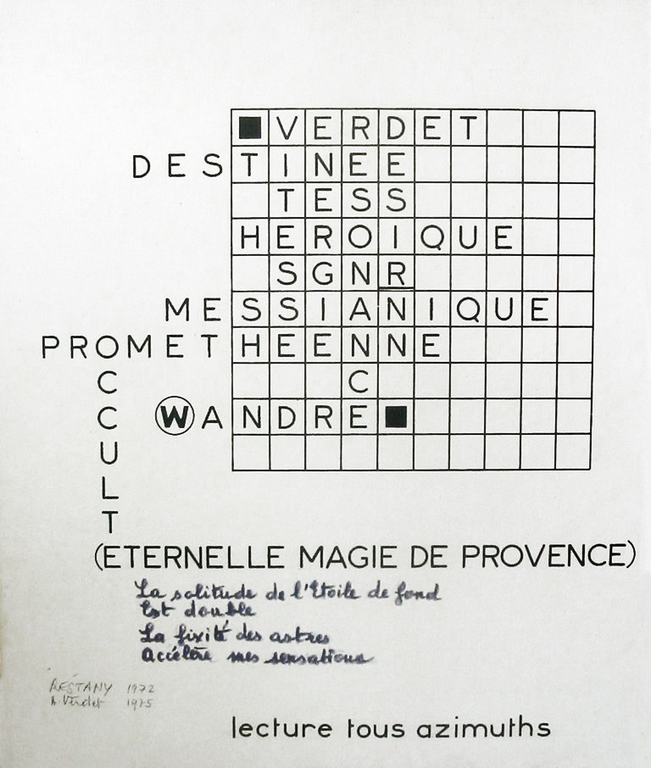 VERDET
DESTINEE
TESS
HEROIQUE
SGNR
MESSIANIQUE
PROMETHEENNE
C C
C WANDRE
U
L
T
(ETERNELLE MAGIE DE PROVENCE)
La solitude de l'Etoile de fond
Est double
La fixité des astres
Accélère mes sensations
RESTANY 1972
A. Verdet 1975
lecture tous azimuths